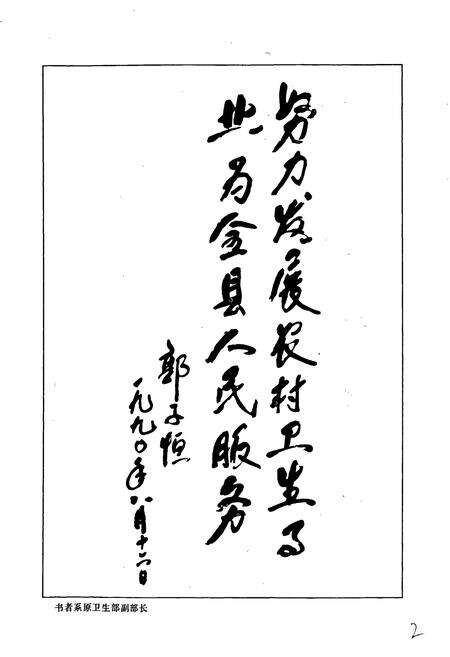 努力发展农村卫生事
业为全县人民服务
郭子恒
一九九〇年八月十六日
书者系原卫生部副部长
2